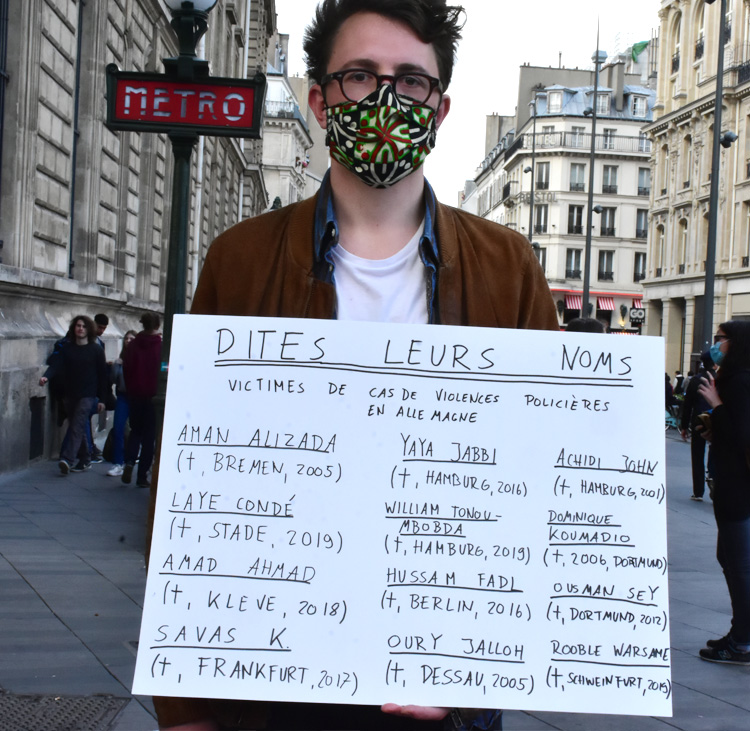 METRO
DITES LEURS NOMS
VICTIMES DE CAS DE VIOLENCES POLICIÈRES
EN ALLEMAGNE
AMAN ALIZADA
(†, BREMEN, 2005)
LAYE CONDÉ
(†, STADE, 2019)
AMAD AHMAD
(†, KLEVE, 2018)
SAVAS K.
(†, FRANKFURT, 2017)
YAYA JABBI
(†, HAMBURG, 2016)
WILLIAM TONOU-
MBOBDA
(†, HAMBURG, 2019)
HUSSAM FADL
(†, BERLIN, 2016)
OURY JALLOH
(†, DESSAU, 2005)
ACHIDI JOHN
(†, HAMBURG, 2001)
DOMINIQUE
KOUMADIO
(†, 2006, DORTMUND)
OUSMAN SEY
(†, DORTMUND, 2012)
ROOBLE WARSAME
(†, SCHWEINFURT, 2019)
GO